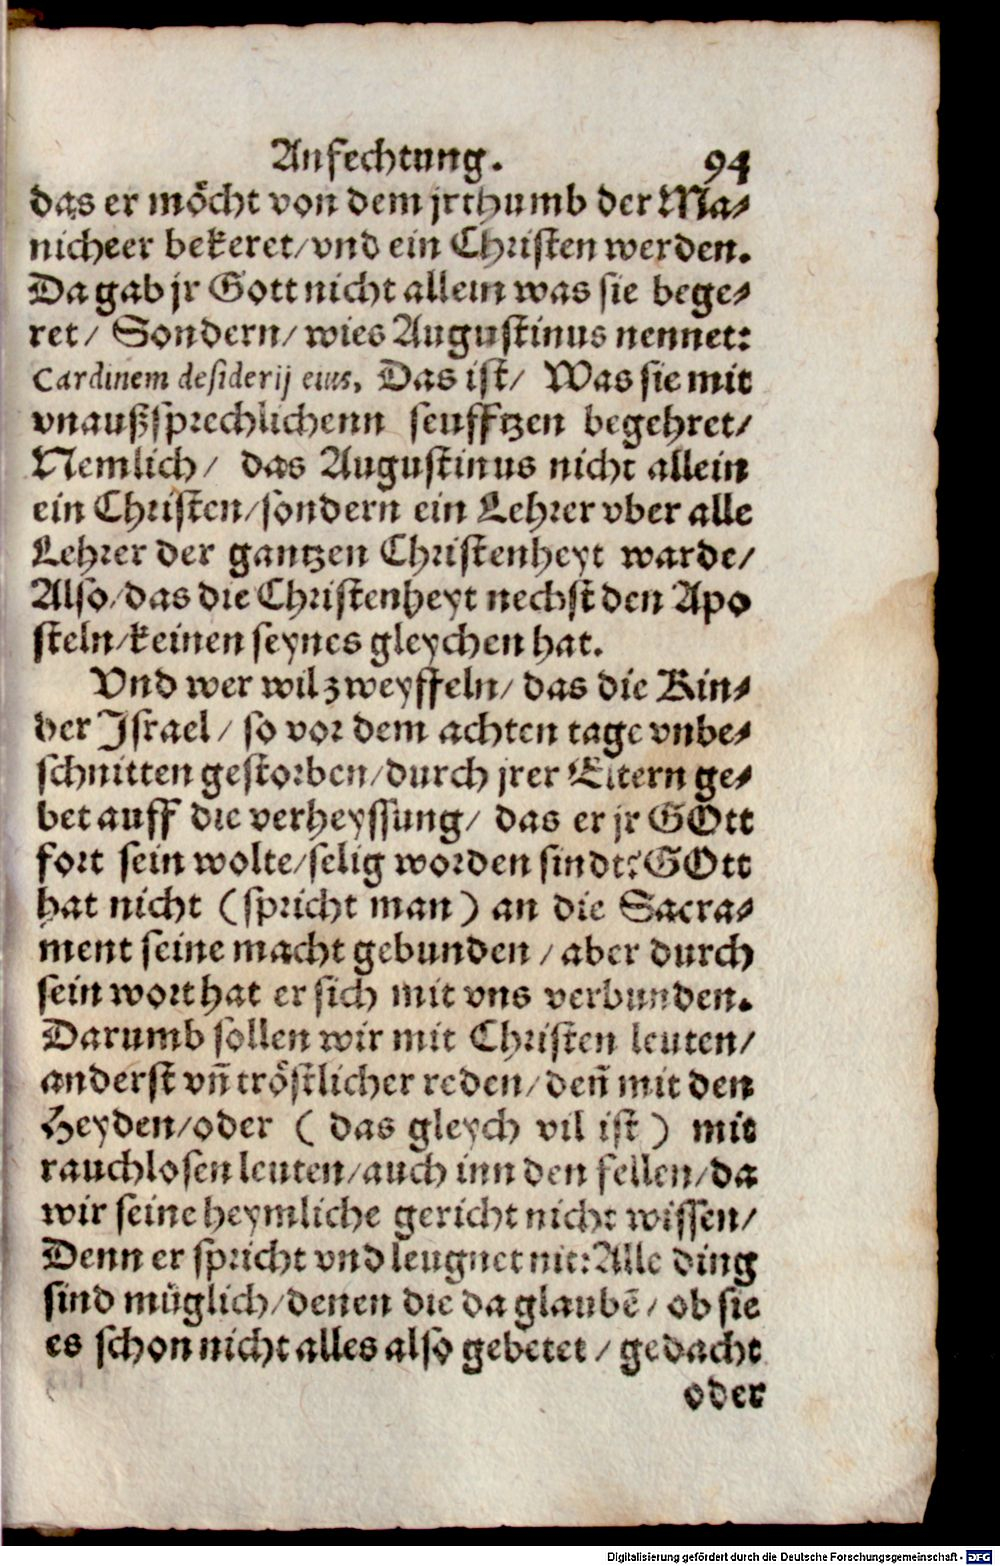 Anfechtung. 94
das er möcht von dem jrthumb der Ma-
nicheer bekeret/vnd ein Christen werden.
Da gab jr Gott nicht allein was sie bege-
ret/ Sondern/ wies Augustinus nennet:
Cardinem desiderij eius, Das ist/ Was sie mit
vnaußsprechlichenn seufftzen begehret/
Nemlich/ das Augustinus nicht allein
ein Christen/sondern ein Lehrer vber alle
Lehrer der gantzen Christenheyt warde/
Also/das die Christenheyt nechst den Apo
steln/keinen seynes gleychen hat.
Vnd wer wil zweyffeln/ das die Kin-
der Israel/ so vor dem achten tage vnbe-
schnitten gestorben/durch jrer Eltern ge-
bet auff die verheyssung/ das er jr GOtt
fort sein wolte/selig worden sindt? GOtt
hat nicht (spricht man) an die Sacra-
ment seine macht gebunden/aber durch
sein wort hat er sich mit vns verbunden.
Darumb sollen wir mit Christen leuten/
anderst vn̄ tröstlicher reden/den̄ mit den
Heyden/oder ( das gleych vil ist ) mit
rauchlosen leuten/auch inn den fellen/da
wir seine heymliche gericht nicht wissen/
Denn er spricht vnd leugnet nit: Alle ding
sind müglich/denen die da glaubē/ ob sie
es schon nicht alles also gebetet/ gedacht
oder
Digitalisierung gefördert durch die Deutsche Forschungsgemeinschaft - DFG